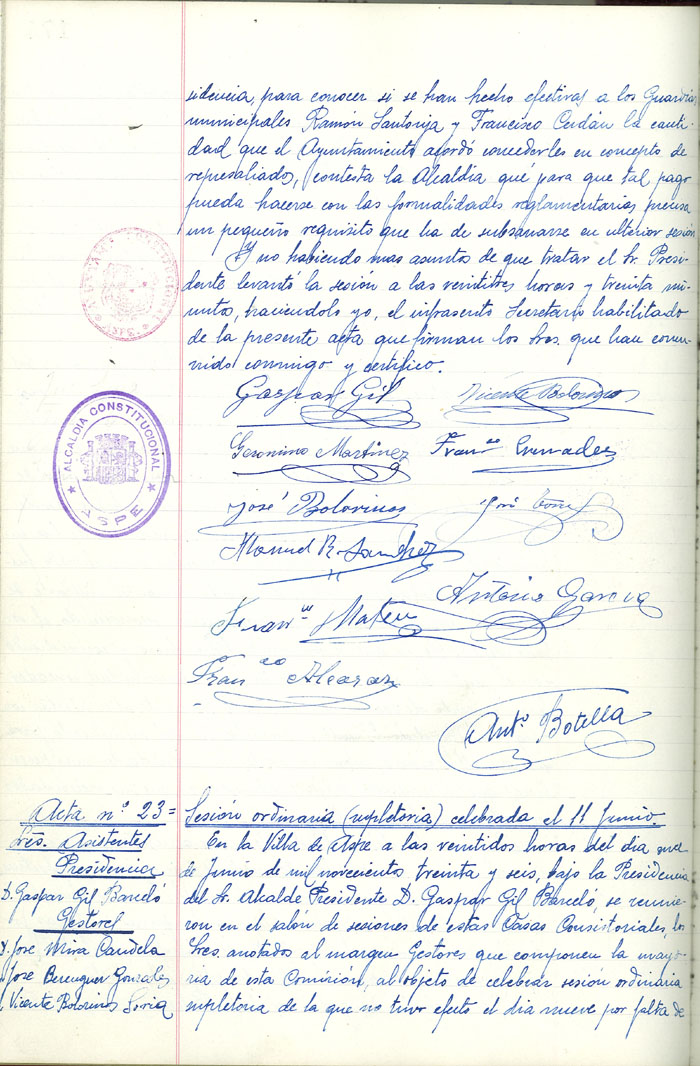 sidencia, para conocer si se han hecho efectivas a los Guardias
municipales Ramón Santonja y Francisco Cerdán la canti-
dad que el Ayuntamiento acordó concederles en concepto de
represaliados, contesta la Alcaldía que para que tal pago
pueda hacerse con las formalidades reglamentarias precisa
un pequeño requisito que ha de subsanarse en ulterior sesión
Y no habiendo mas asuntos de que tratar el Sr. Presi-
dente levantó la sesión a las veintitres horas y treinta mi-
nutos, haciéndolo yo, el infrascrito Secretario habilitado
de la presente acta que firman los Sres. que han concu-
rrido conmigo y certifico.
Gaspar Gil
Vicente Bolorinos
Geronimo Martinez
Fran.co
José Bolorinos
José
Manuel R. Sanchez
Antonio Garcia
Mateu
Fran.co Alcaraz
Ant.º Botella
ALCALDIA CONSTITUCIONAL
ASPE
Acta nº 23=
Sres. Asistentes
Presidencia
D. Gaspar Gil Barceló
Gestores
D. José Mira Candela
José Berenguer Gonzales
Vicente Bolorinos Soria
Sesión ordinaria (supletoria) celebrada el 11 Junio.
En la Villa de Aspe a las veintidos horas del dia once
de Junio de mil novecientos treinta y seis, bajo la Presidencia
del Sr. Alcalde Presidente D. Gaspar Gil Barceló, se reunie-
ron en el salón de sesiones de estas Casas Consistoriales, los
Sres. anotados al margen Gestores que componen la mayo-
ria de esta Comisión, al objeto de celebrar sesión ordinaria
supletoria de la que no tuvo efecto el dia nueve por falta de